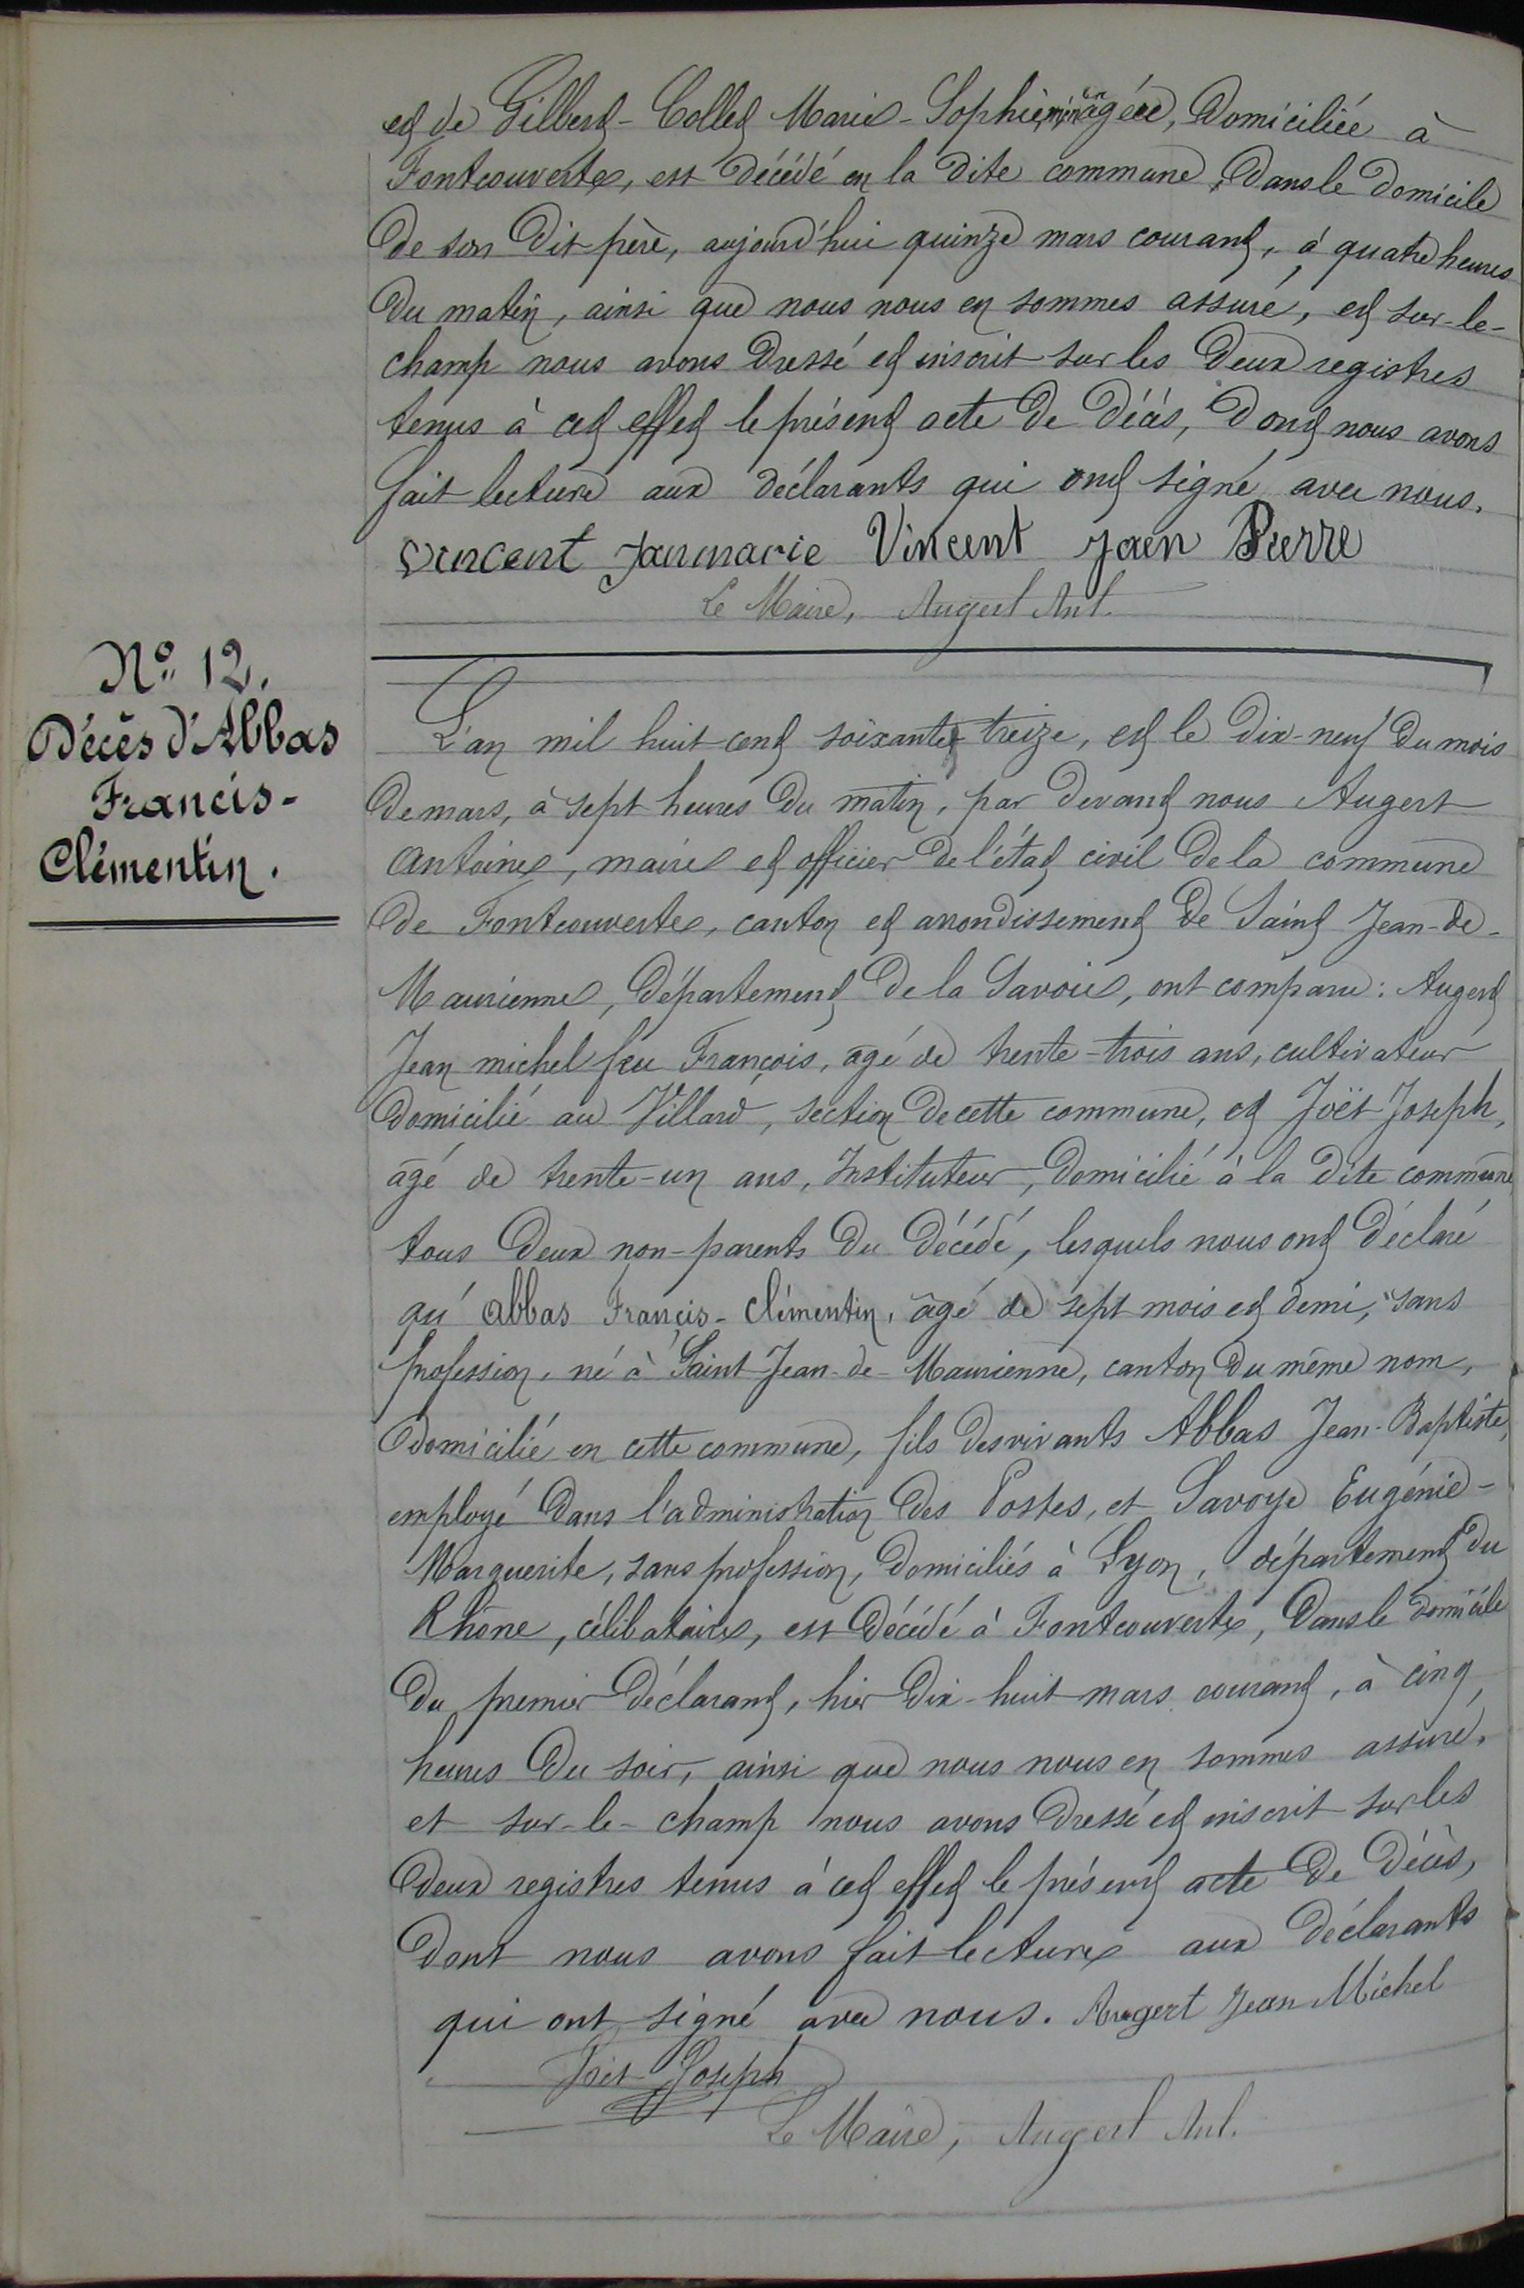 et de Gilbert-Collet Marie-Sophie, ménagère, domiciliée à
Fontcouverte, est décédé en la dite commune, dans le domicile
de son dit père, aujourd'hui quinze mars courant, à quatre heures
du matin, ainsi que nous nous en sommes assuré, et sur-le-
champ nous avons dressé et inscrit sur les deux registres
tenus à cet effet le présent acte de décès, dont nous avons
fait lecture aux déclarants qui ont signé avec nous.
Vincent Janmarie Vincent Jean Pierre
Le Maire, Augert Ant.
No 12.
Décès d'Abbas
Francis-
Clémentin.
L'an mil huit cent soixante treize, et le dix-neuf du mois
de mars, à sept heures du matin, par devant nous Augert
Antoine, maire et officier de l'état civil de la commune
de Fontcouverte, canton et arrondissement de Saint Jean-de-
Maurienne, département de la Savoie, ont comparu : Augert
Jean michel feu François, âgé de trente-trois ans, cultivateur
domicilié au Villard, section de cette commune, et Joët Joseph,
âgé de trente-un ans, Instituteur, domicilié à la dite commune
tous deux non-parents du décédé, lesquels nous ont déclaré
qu'Abbas Françis-Clémentin, âgé de sept mois et demi, sans
profession, né à Saint Jean-de-Maurienne, canton du même nom,
domicilié en cette commune, fils des vivants Abbas Jean-Baptiste,
employé dans l'administration des Postes, et Savoye Eugénie-
Marguerite, sans profession, domiciliés à Lyon, département du
Rhône, célibataire, est décédé à Fontcouverte, dans le domicile
du premier déclarant, hier dix-huit mars courant, à cinq
heures du soir, ainsi que nous nous en sommes assuré,
et sur-le-champ nous avons dressé et inscrit sur les
deux registres tenus à cet effet le présent acte de décès,
dont nous avons fait lecture aux déclarants
qui ont signé avec nous. Augert Jean Michel
Joët Joseph
Le Maire, Augert Ant.